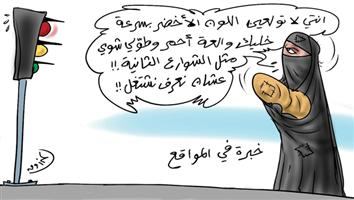 انتي لا تولعين اللون الأخضر بسرعة
خليك والعة أحمر وطفي شوي
مثل الشوارع الثانية !!
عشان نعرف نشتغل !!
خبرة في المواقع